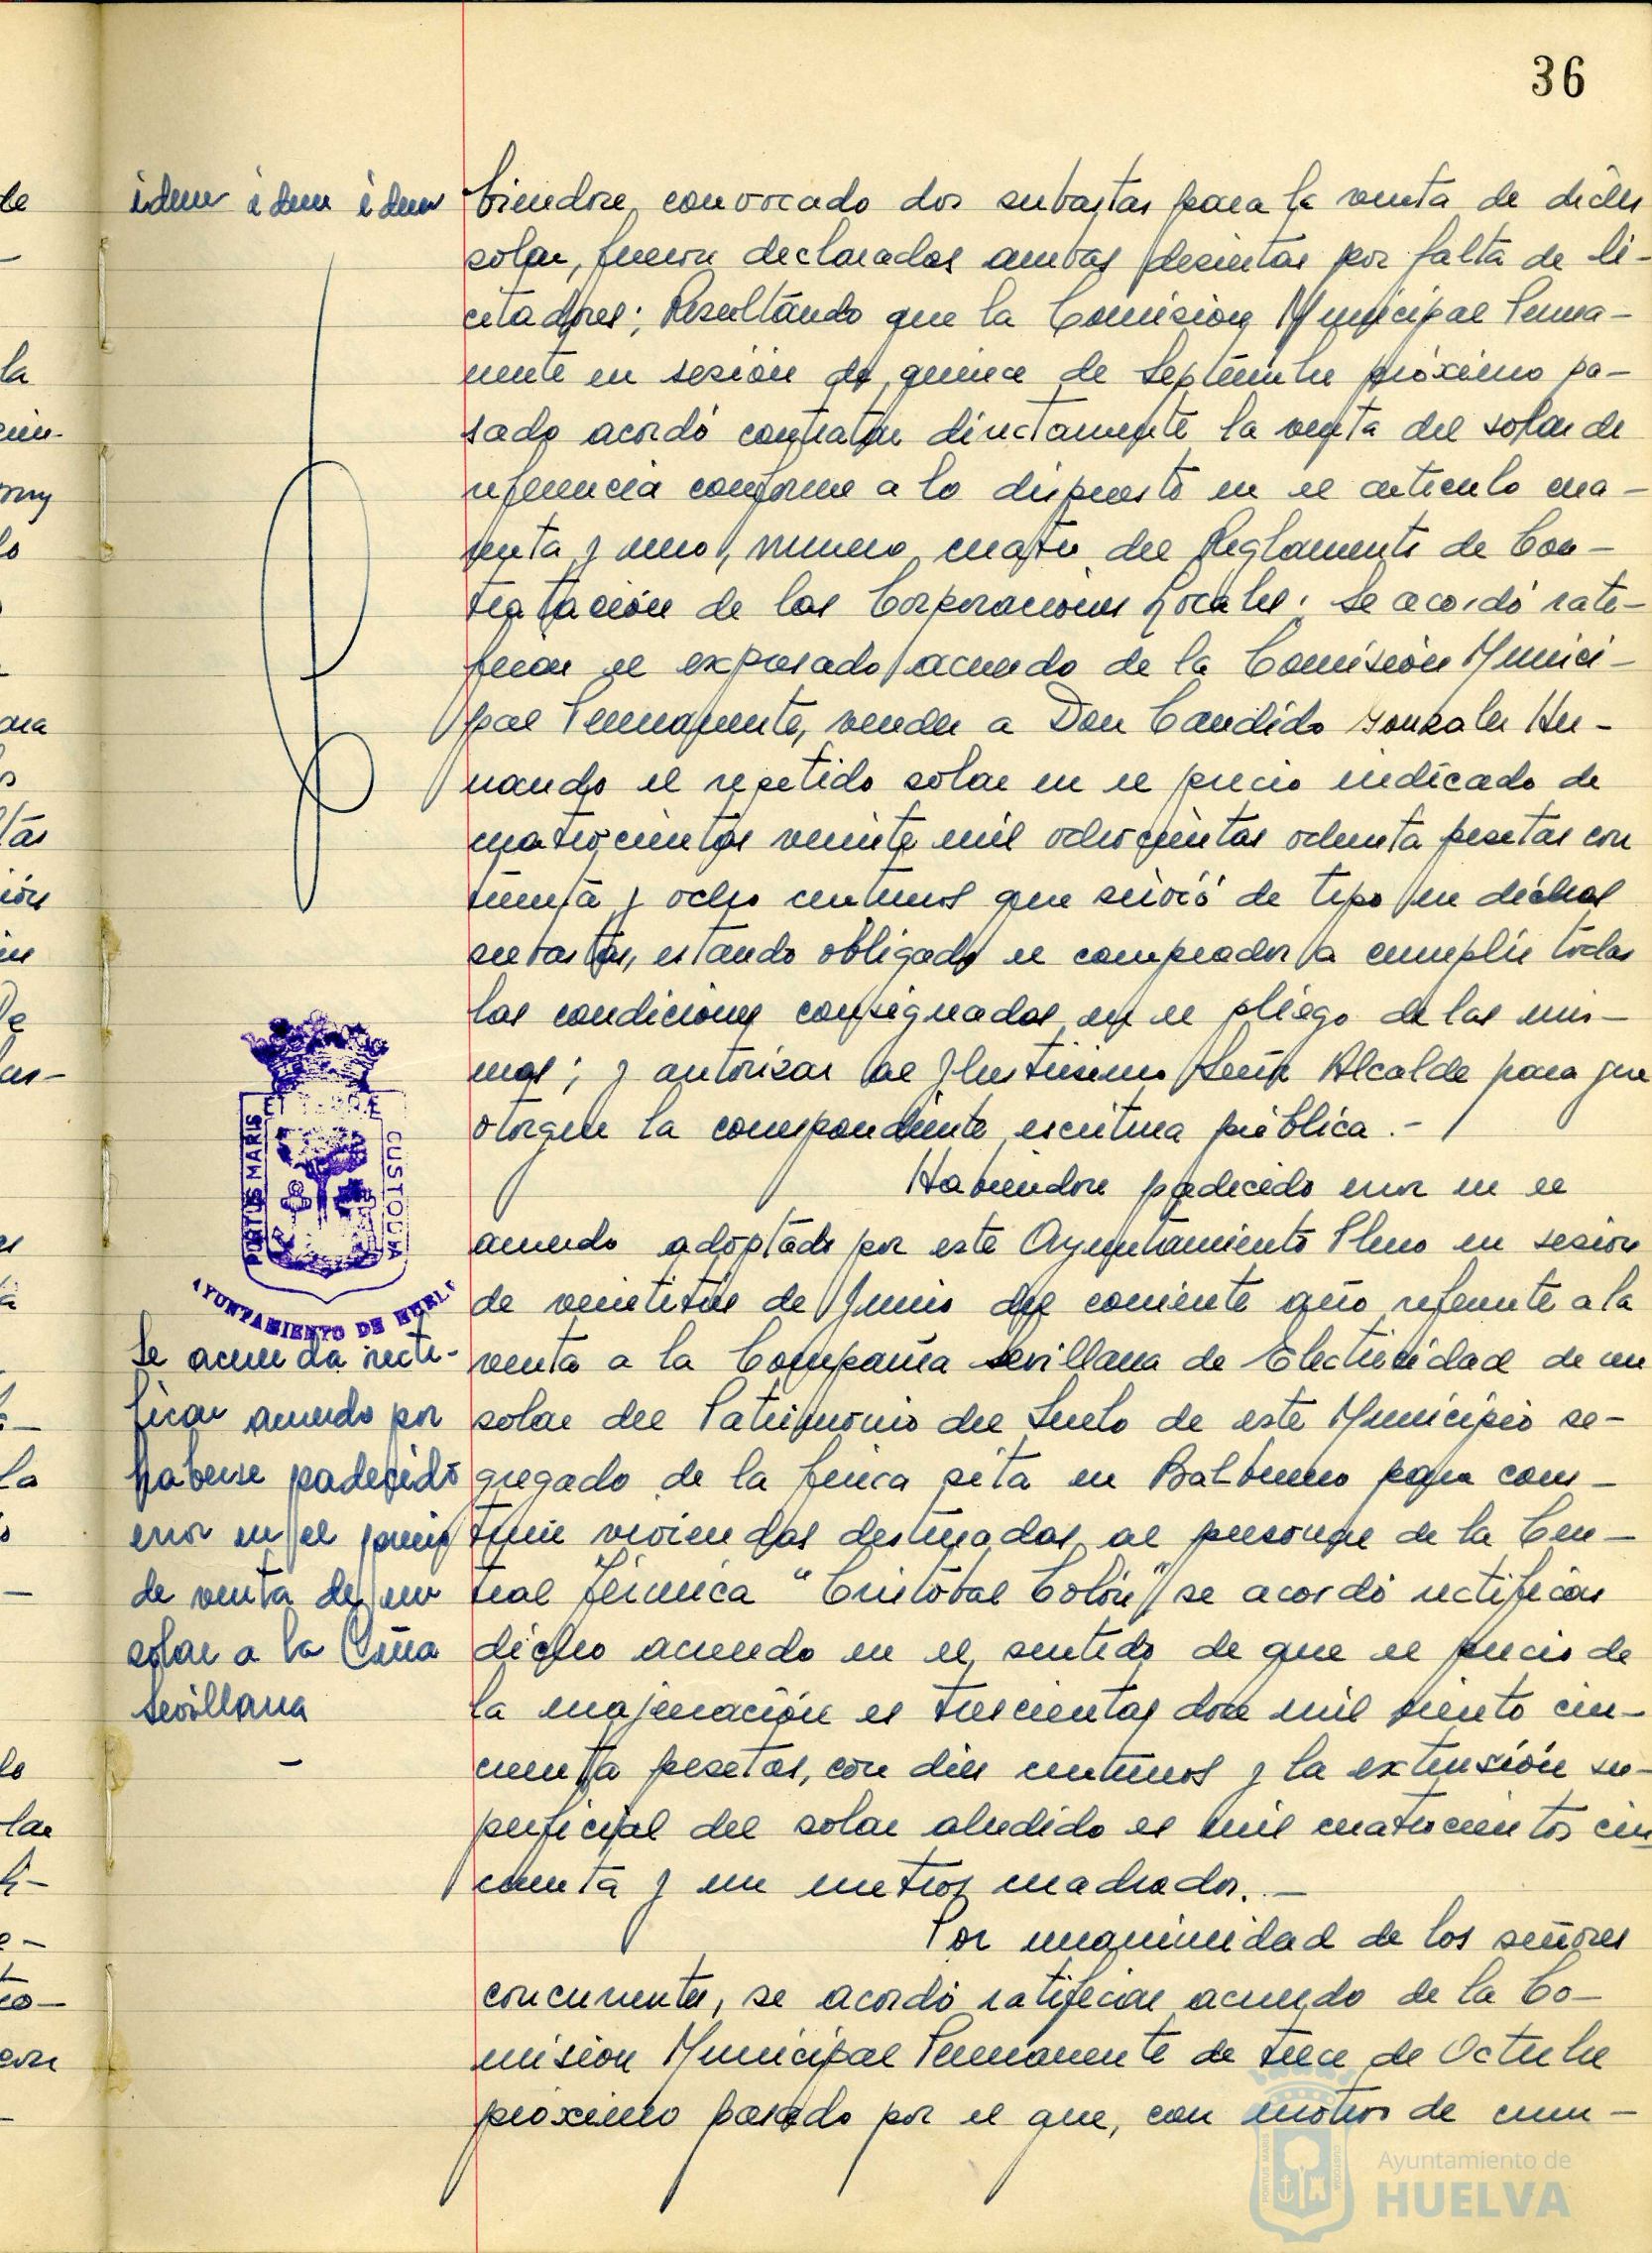 36
idem idem idem
biendose convocado dos subastas para la venta de dicho
solar, fueron declaradas ambas desiertas por falta de li-
citadores; Resultando que la Comision Municipal Perma-
nente en sesión de quince de Septiembre próximo pa-
sado acordó contratar directamente la venta del solar de
referencia conforme a lo dispuesto en el articulo cua-
renta y uno, numero cuatro del Reglamento de Con-
tratación de las Corporaciones Locales; Se acordó rati-
ficar el expresado acuerdo de la Comisión Munici-
pal Permanente, vender a Don Candido Gonzalez Her-
nando el repetido solar en el precio indicado de
cuatrocientas veinte mil ochocientas ochenta pesetas con
treinta y ocho centimos que sirvió de tipo en dichas
subastas, estando obligado el comprador a cumplir todas
las condiciones consignadas en el pliego de las mis-
mas; y autorizar al Ilustrisimo Señor Alcalde para que
otorgue la correspondiente escritura pública.-
PORTUS MARIS ET TERRAE CUSTODIA
AYUNTAMIENTO DE HUELVA
Habiendose padecido error en el
acuerdo adoptado por este Ayuntamiento Pleno en sesion
de veintitrés de Junio del corriente año referente a la
venta a la Compañia Sevillana de Electricidad de un
solar del Patrimonio del Suelo de este Municipio se-
gregado de la finca sita en Balbueno para cons-
truir viviendas destinadas al personal de la Cen-
tral Térmica "Cristobal Colón" se acordó rectificar
dicho acuerdo en el sentido de que el precio de
la enajenación es trescientas doce mil ciento cin-
cuenta pesetas, con diez centimos y la extensión su-
perficial del solar aludido es mil cuatrocientos cin
cuenta y un metros cuadrados.-
Se acuerda recti-
ficar acuerdo por
haberse padecido
error en el precio
de venta de un
solar a la Cñia
Sevillana
-
Por unanimidad de los señores
concurrentes, se acordó ratificar acuerdo de la Co-
mision Municipal Permanente de trece de Octubre
próximo pasado por el que, con motivo de cum-
Ayuntamiento de
HUELVA